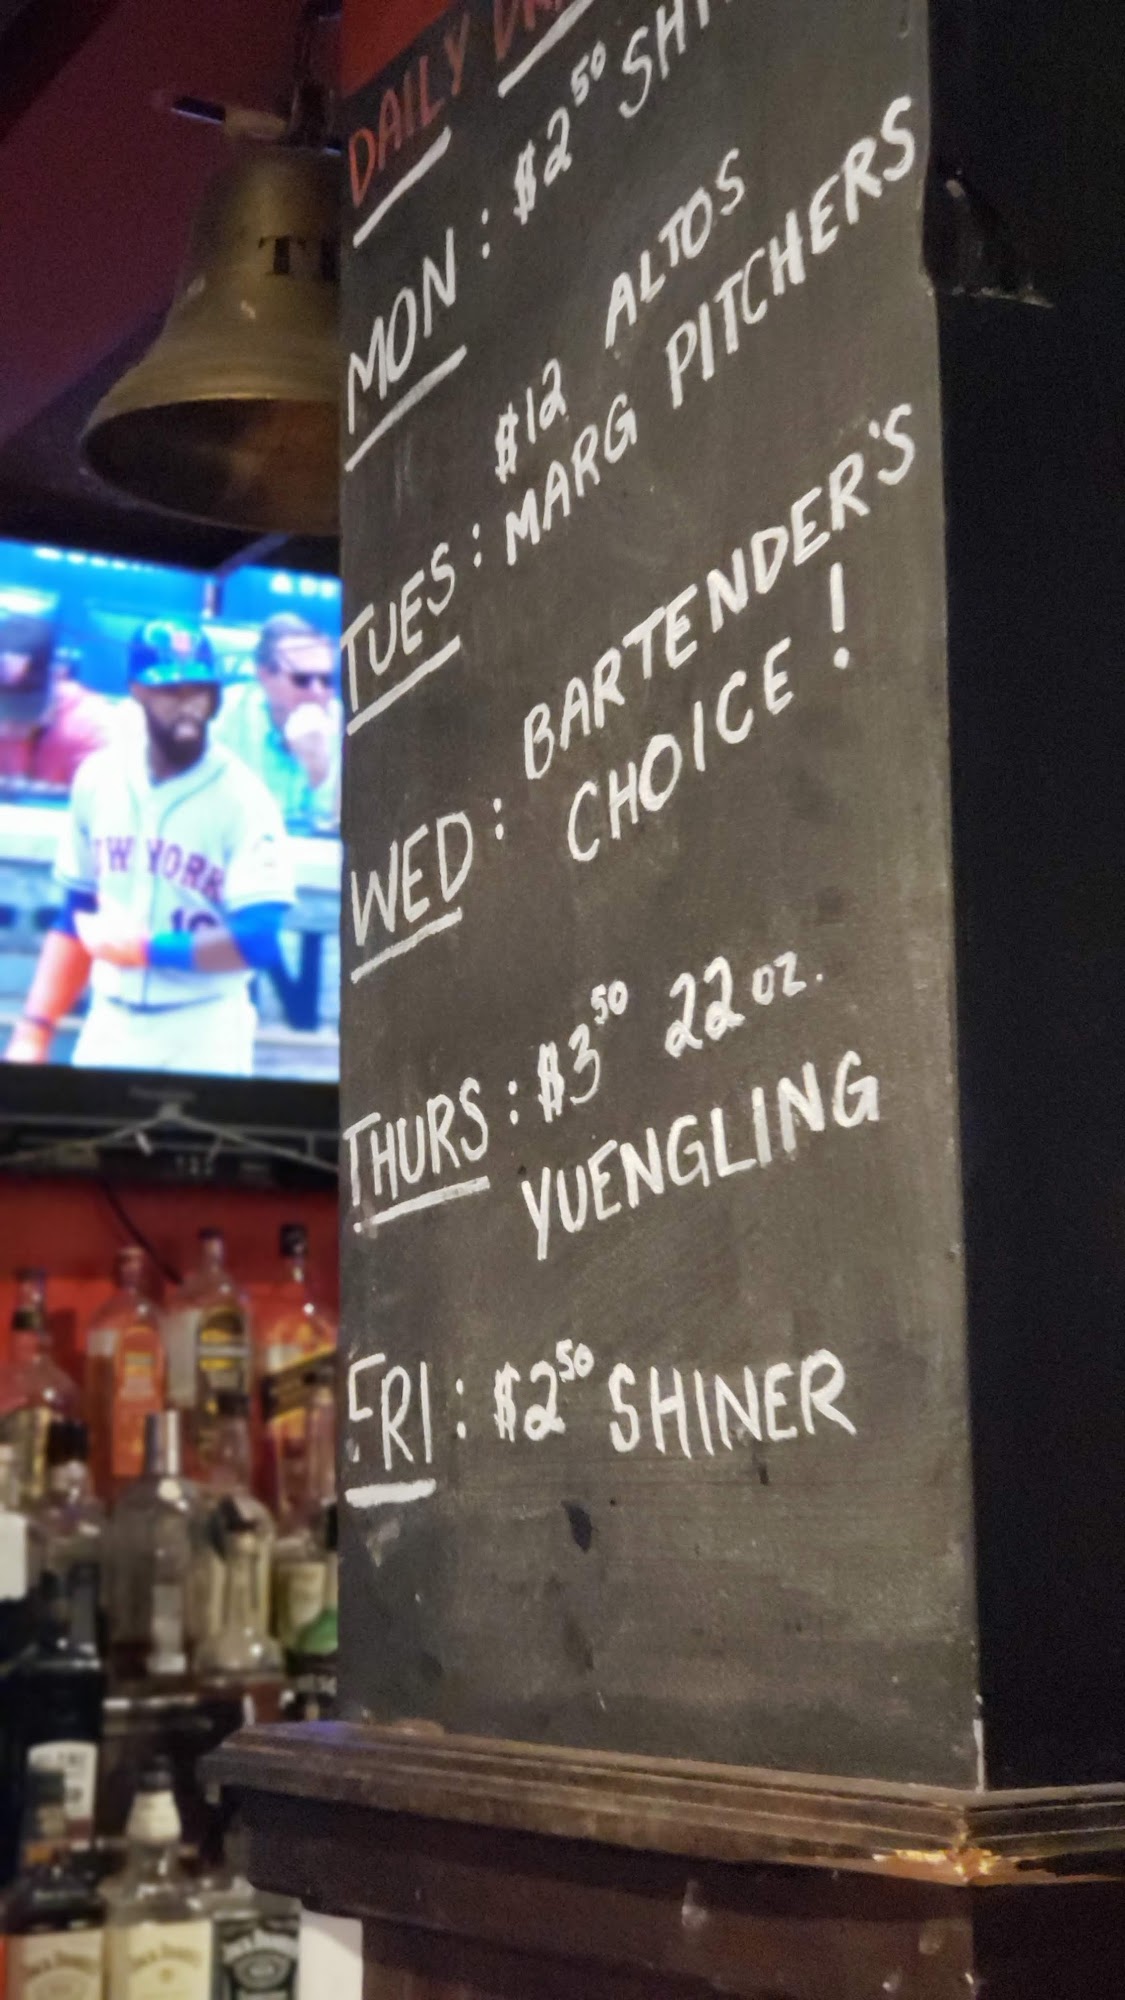 DAILY
MON: $2.50
$12 ALTOS
TUES: MARG PITCHERS
BARTENDER'S
WED: CHOICE!
THURS: $3.50 22 oz.
YUENGLING
FRI: $2.50 SHINER
YORK